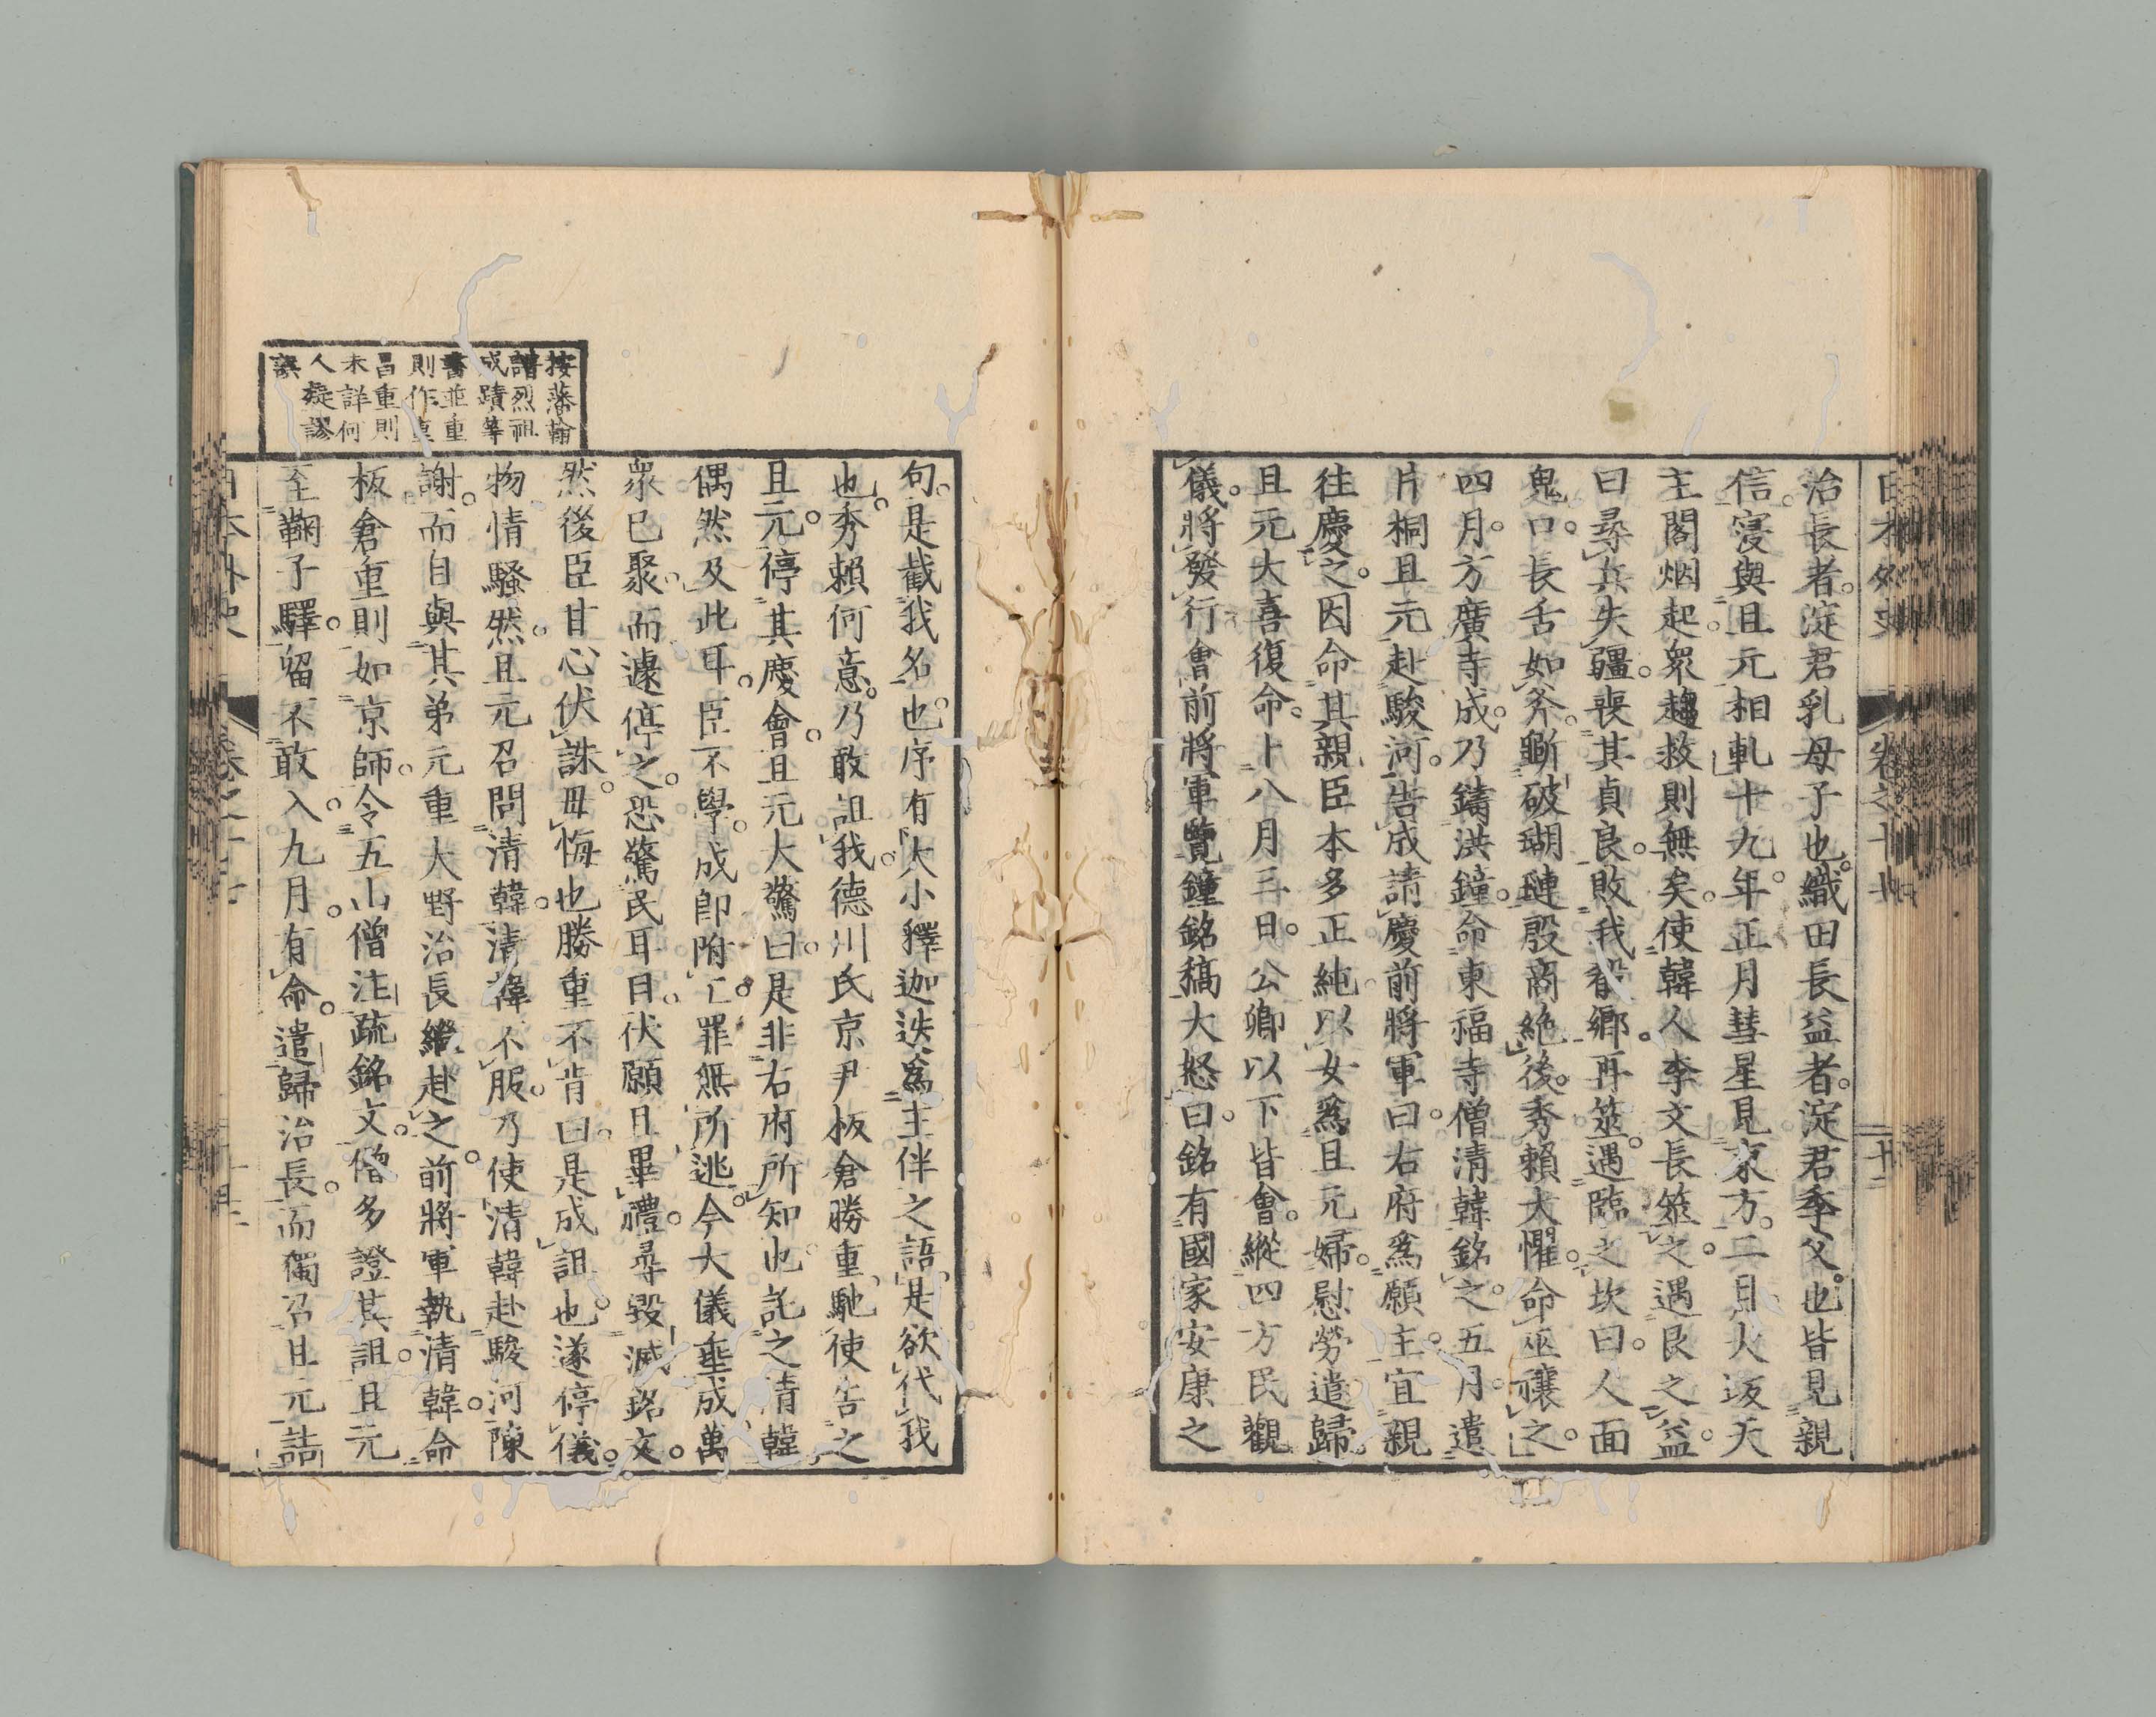 日本外史 卷之十七 廿二
治長者。淀君乳母子也。織田長益者。淀君季父也。皆見親
信。寖與且元相軋。十九年。正月彗星見東方。二月大坂天
主閣烟起。衆趨救則無矣。使韓人李文長筮之。遇艮之益。
曰尋兵失疆。喪其貞良。敗我穀鄕。再筮。遇臨之坎曰。人面
鬼口。長舌如斧。斲破瑚璉。殷商絶後。秀賴大懼。命巫禳之。
四月。方廣寺成。乃鑄洪鐘。命東福寺僧清韓銘之。五月。遣
片桐且元赴駿河。告成請慶前將軍曰。右府爲願主。宜親
往慶之。因命其親臣本多正純以女爲且元婦。慰勞遣歸。
且元大喜復命。卜八月三日。公卿以下皆會。縱四方民觀
儀。將發行會前將軍覽鐘銘稿大怒曰。銘有國家安康之
句。是截我名也。序有大小釋迦迭爲主伴之語。是欲代我
也。秀賴何意。乃敢詛我。德川氏京尹板倉勝重馳使告之
且元。停其慶會。且元大驚曰。是非右府所知也。託之清韓
偶然及此耳。臣不學。成卽附亡。罪無所逃。今大儀垂成萬
衆已聚。而遽停之。恐驚民耳目。伏願且畢禮。尋毀滅銘文。
然後臣甘心伏誅。毋悔也。勝重不肯曰。是成詛也。遂停儀。
物情騷然。且元召問清韓。清韓不服。乃使清韓赴駿河陳
謝。而自與其弟元重大野治長繼赴之。前將軍執清韓。命
板倉重則如京師。令五山僧注疏銘文。僧多證其詛。且元
至鞠子驛。留不敢入。九月。有命。遣歸治長。而獨召且元詰
日本外史 卷之十七
按藩翰
譜烈祖
成蹟等
書並重
則作重
昌重則
未詳何
人疑謬
誤